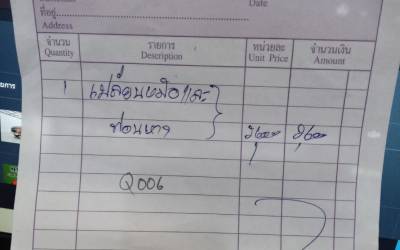 ที่อยู่
Address
Date
จำนวน รายการ หน่วยละ จำนวนเงิน
Quantity Description Unit Price Amount
1 เปลี่ยนหม้อและ
ซ่อมหาง
Q006